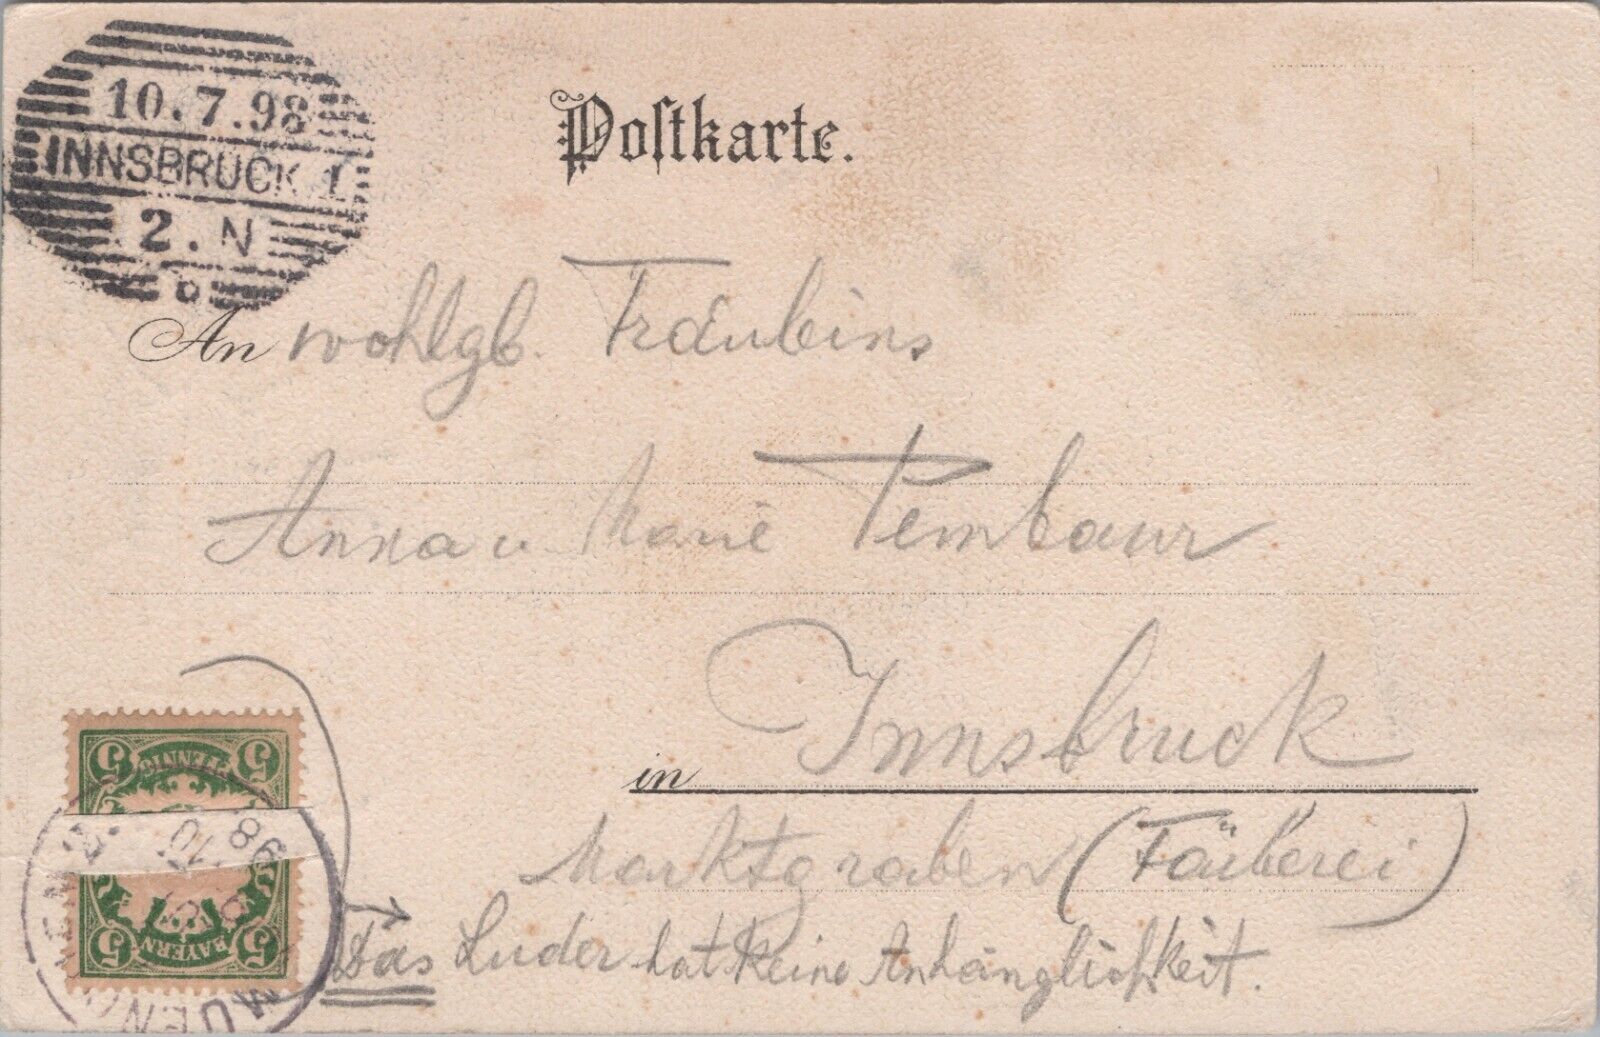 10.7.98
INNSBRUCK 1
2.N
Postkarte.
An wohlgb. Fräuleins
Anna u. Marie Pembaur
in Innsbruck
Marktgraben (Färberei)
Das Luder hat keine Anhänglichkeit.
5 PFENNIG 5
98
5 BAYERN 5
MUENCHEN